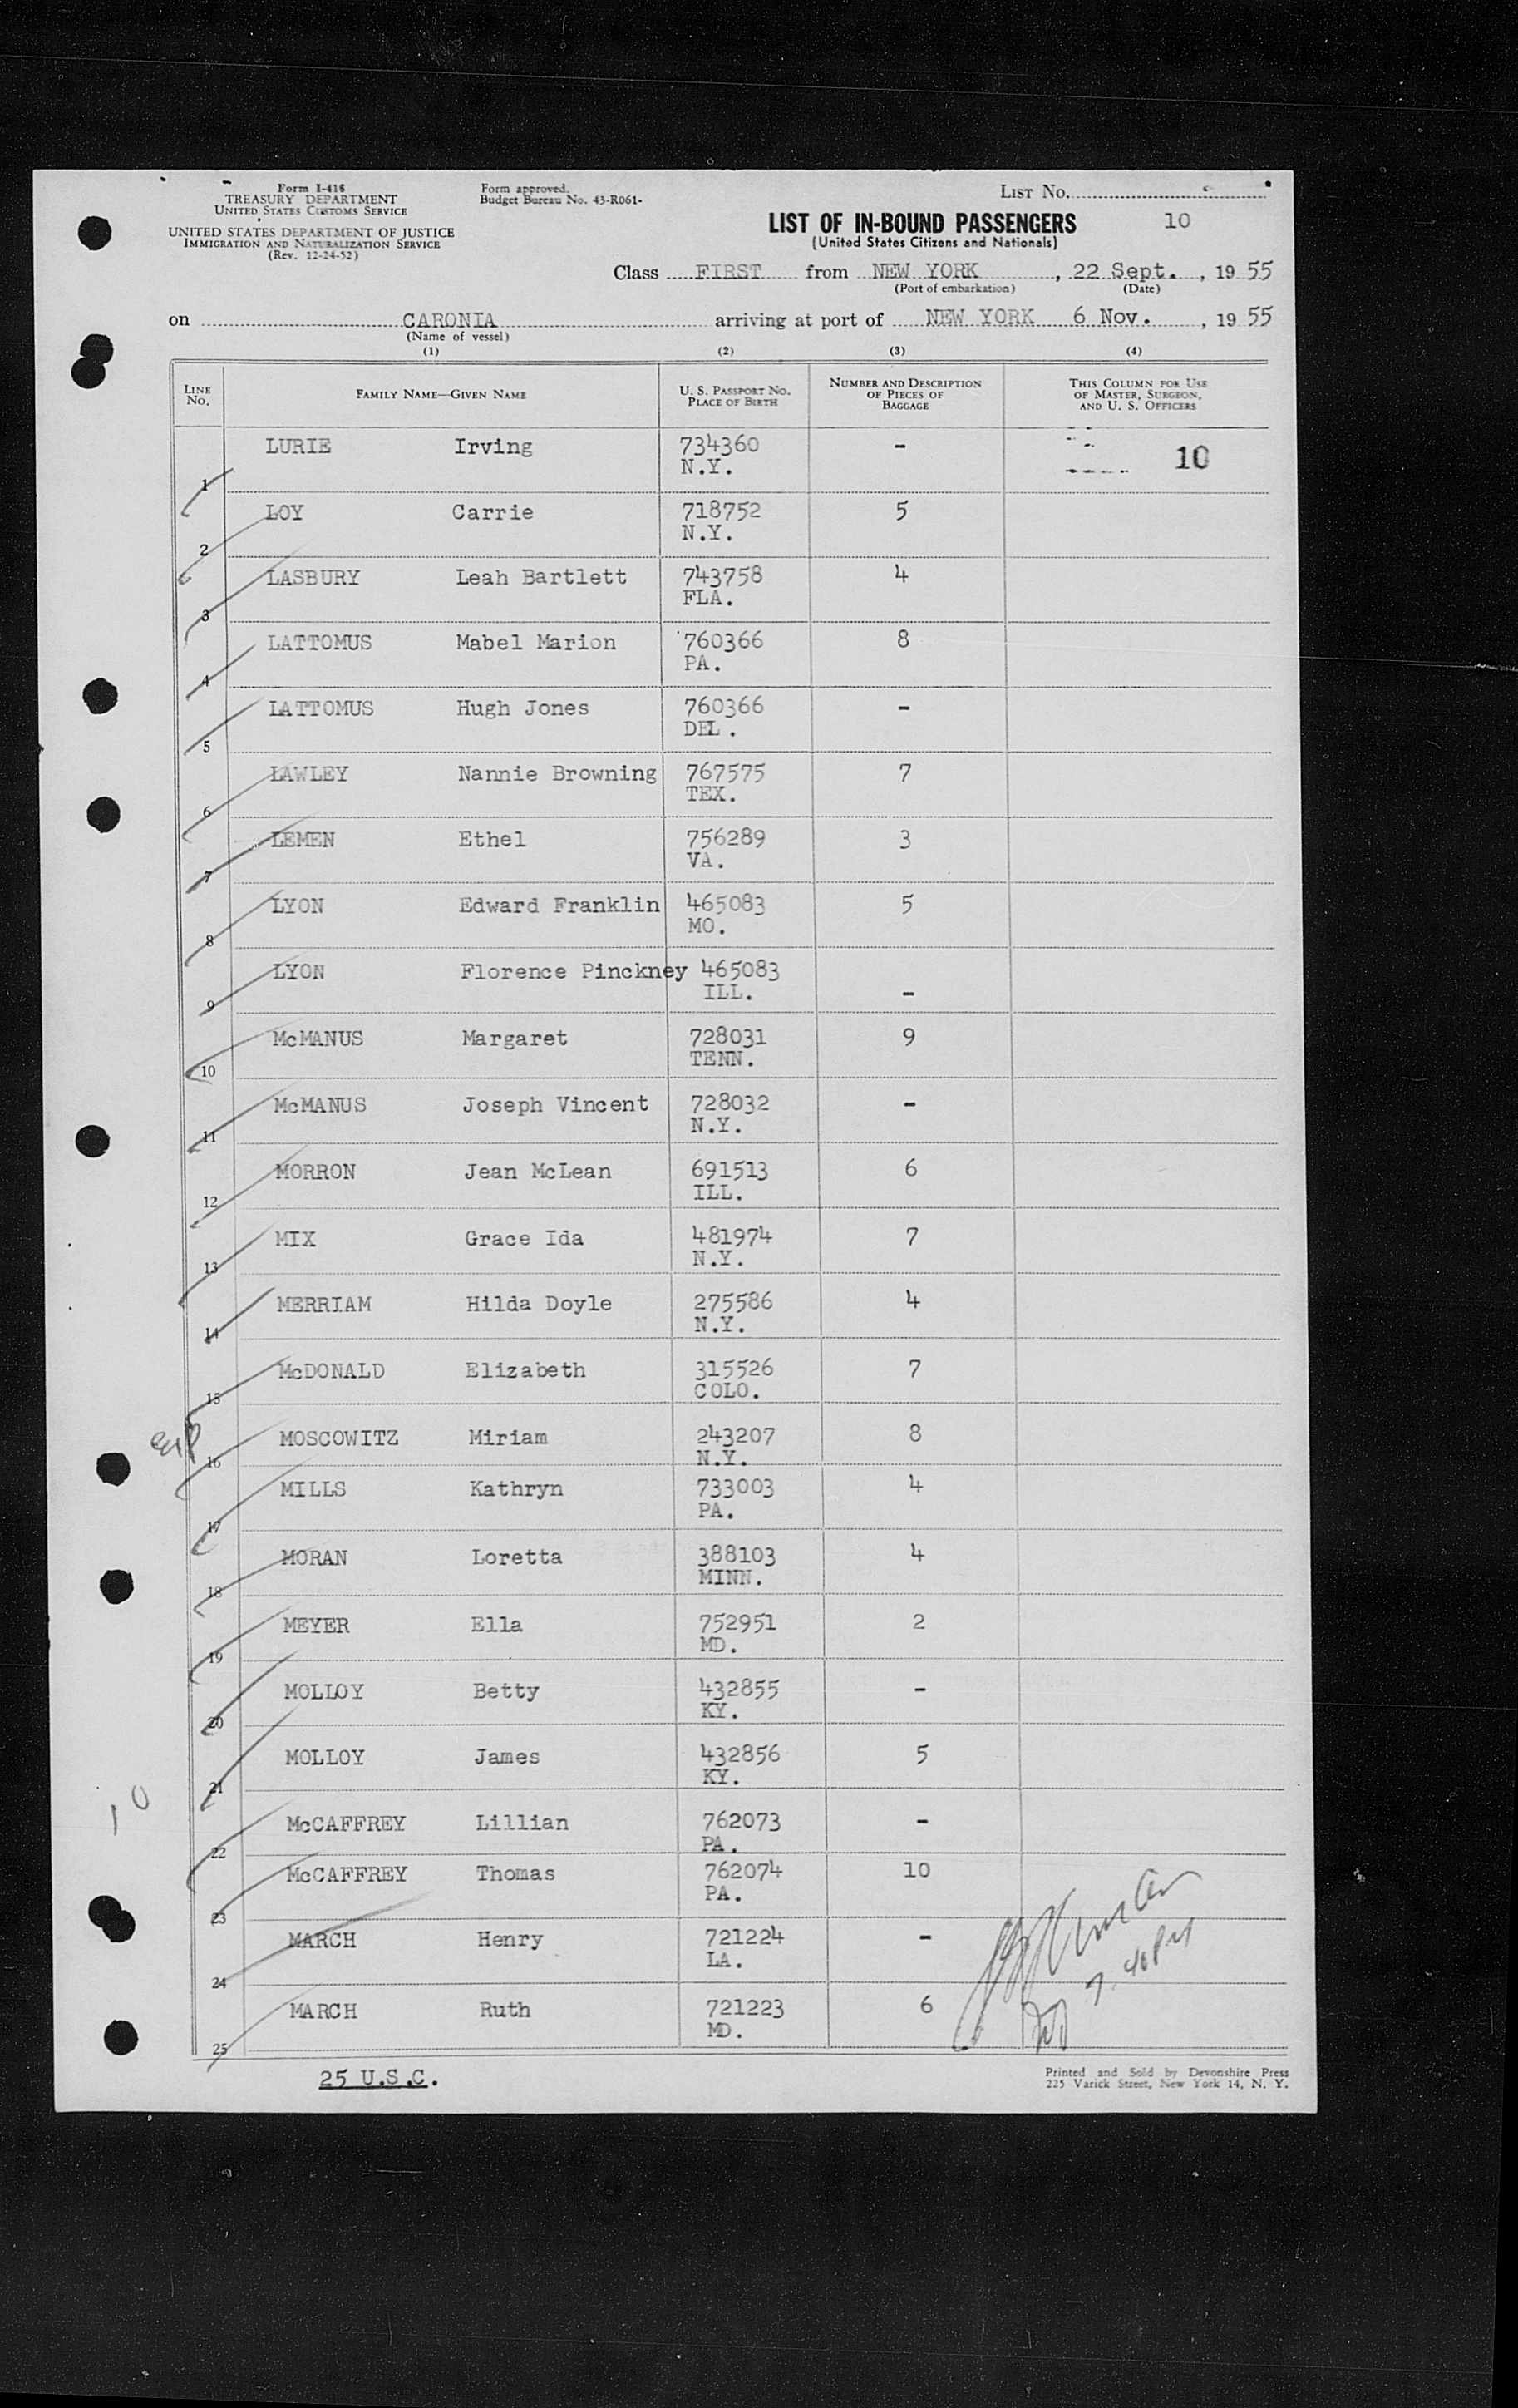 Form I-416
TREASURY DEPARTMENT
UNITED STATES CUSTOMS SERVICE
UNITED STATES DEPARTMENT OF JUSTICE
IMMIGRATION AND NATURALIZATION SERVICE
(Rev. 12-24-52)
Form approved.
Budget Bureau No. 43-R061-
LIST No.
LIST OF IN-BOUND PASSENGERS 10
(United States Citizens and Nationals)
Class FIRST from NEW YORK, 22 Sept., 1955
(Port of embarkation) (Date)
on CARONIA arriving at port of NEW YORK 6 Nov., 1955
(Name of vessel)
(1) (2) (3) (4)
LINE No. FAMILY NAME—GIVEN NAME U. S. PASSPORT No. PLACE OF BIRTH NUMBER AND DESCRIPTION OF PIECES OF BAGGAGE THIS COLUMN FOR USE OF MASTER, SURGEON, AND U. S. OFFICERS
1 LURIE Irving 734360 - 10
N.Y.
2 LOY Carrie 718752 5
N.Y.
3 LASBURY Leah Bartlett 743758 4
FLA.
4 LATTOMUS Mabel Marion 760366 8
PA.
5 LATTOMUS Hugh Jones 760366 -
DEL.
6 LAWLEY Nannie Browning 767575 7
TEX.
7 LEMEN Ethel 756289 3
VA.
8 LYON Edward Franklin 465083 5
MO.
9 LYON Florence Pinckney 465083 -
ILL.
10 McMANUS Margaret 728031 9
TENN.
11 McMANUS Joseph Vincent 728032 -
N.Y.
12 MORRON Jean McLean 691513 6
ILL.
13 MIX Grace Ida 481974 7
N.Y.
14 MERRIAM Hilda Doyle 275586 4
N.Y.
15 McDONALD Elizabeth 315526 7
COLO.
16 MOSCOWITZ Miriam 243207 8
N.Y.
17 MILLS Kathryn 733003 4
PA.
18 MORAN Loretta 388103 4
MINN.
19 MEYER Ella 752951 2
MD.
20 MOLLOY Betty 432855 -
KY.
21 MOLLOY James 432856 5
KY.
10
22 McCAFFREY Lillian 762073 -
PA.
23 McCAFFREY Thomas 762074 10
PA.
24 MARCH Henry 721224 -
LA.
25 MARCH Ruth 721223 6
MD.
25 U.S.C.
Printed and Sold by Devonshire Press
225 Varick Street, New York 14, N. Y.